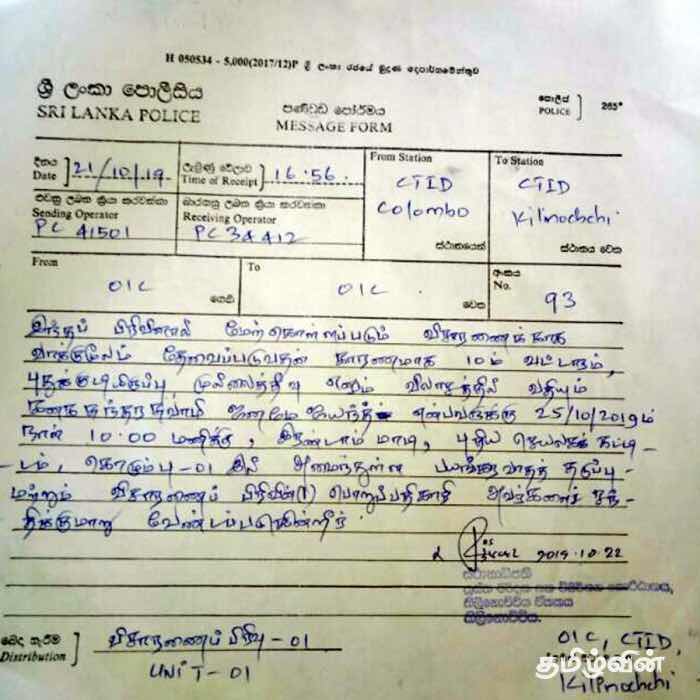 H 050534 - 5,000(2017/12)P ශ්‍රී ලංකා රජයේ මුද්‍රණ දෙපාර්තමේන්තුව
ශ්‍රී ලංකා පොලීසිය
SRI LANKA POLICE
පණිවුඩ පෝර්මය
MESSAGE FORM
පොලිස්
POLICE
දිනය
Date
21/10/19
ලැබුණු වේලාව
Time of Receipt
16.56
From Station
CTID
Colombo
ස්ථානයෙන්
To Station
CTID
Kilinochchi
ස්ථානය වෙත
Sending Operator
PC 41501
Receiving Operator
PC 34412
From
OIC
ගෙන්
To
OIC
වෙත
අංකය
No.
93
இந்தப் பிரிவினால் மேற்கொள்ளப்படும் விசாரணைக்காக
வாக்குமூலம் தேவைப்படுவதன் காரணமாக 10ம் வட்டாரம்,
புதுக்குடியிருப்பு முல்லைத்தீவு எனும் விலாசத்தில் வதியும்
என்பவருக்கு 25/10/2019ம்
நாள் 10.00 மணிக்கு, இரண்டாம் மாடி, புதிய செயலகக் கட்டி
-டம், கொழும்பு-01 இல் அமைந்துள்ள பயங்கரவாதத் தடுப்பு-
மற்றும் விசாரணைப் பிரிவின்(1) பொறுப்பதிகாரி அவர்களைச் சந்
திக்குமாறு வேண்டப்படுகின்றீர்.
2019.10.22
ස්ථානාධිපති
කිලිනොච්චිය
බෙදා හැරීම
Distribution
விசாரணைப் பிரிவு - 01
UNIT - 01
OIC, CTID,
Kilinochchi
தமிழ்வின்